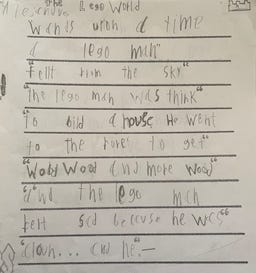 the Lego World
Wans upon a time
a lego man"
"fellt from the sky"
"the lego man was think"
"to bild a house He went
to the forest to get"
"Wody Wood and more Wood"
"a"nd the lego man
felt sad because he was"
"aloun... and he.–